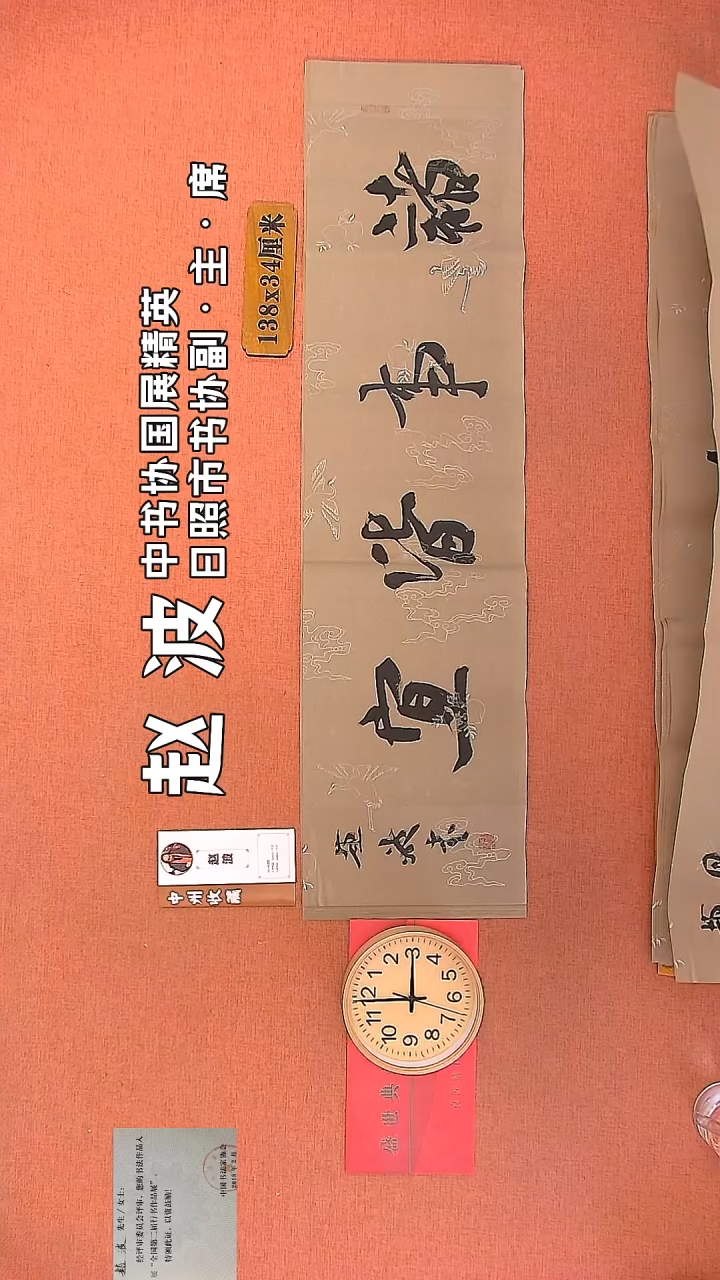 中书协国展精英
赵波 日照市书协副·主·席
138x34厘米
諸事皆宜
赵波
中州收藏
12
1
2
3
4
5
6
7
8
9
10
11
盛世典
赵波 先生/女士:
经评审委员会评审，您的书法作品入
"全国第二届行书作品展"。
特颁此证，以资鼓励！
中国书法家协会